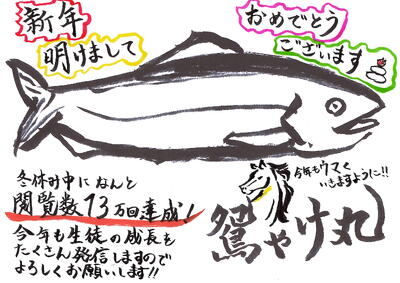 新年
明けまして
おめでとう
ございます
冬休み中になんと
閲覧数13万回達成!
今年も生徒の成長を
たくさん発信しますので
よろしくお願いします!!
今年もウマく
いきますように!!
鴛やけ丸